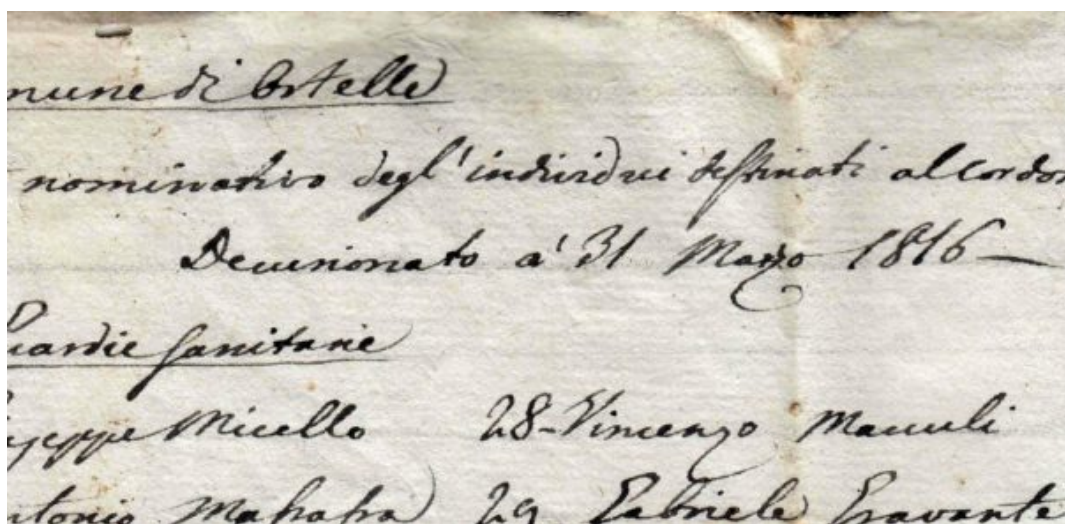 mune di Ortelle
nominativo degl'individui destinati al Cordon
Decurionato a' 31 Marzo 1816 —
uardie Sanitarie
iuseppe Micello 28 - Vincenzo Maculi
ntonio 29 Gabriele Gravante